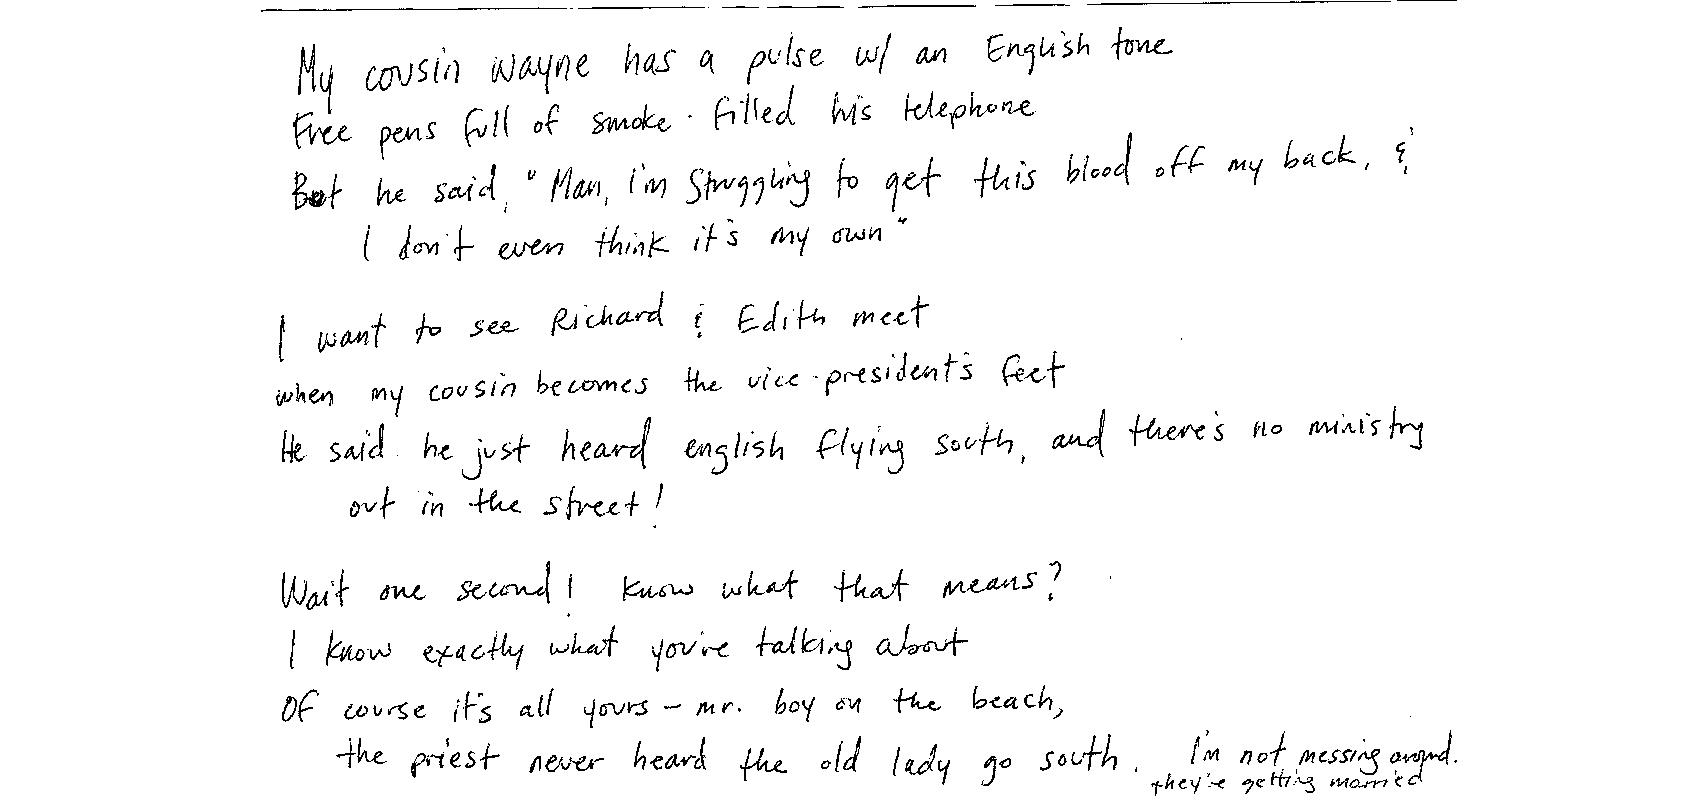 My cousin wayne has a pulse w/ an English tone
Free pens full of smoke. filled his telephone
But he said, "Man, I'm struggling to get this blood off my back, &
I don't even think it's my own"
I want to see Richard & Edith meet
when my cousin becomes the vice-president's feet
He said he just heard english flying south, and there's no ministry
out in the street!
Wait one second! Know what that means?
I know exactly what you're talking about
Of course it's all yours – mr. boy on the beach,
the priest never heard the old lady go south. I'm not messing around.
they're getting married